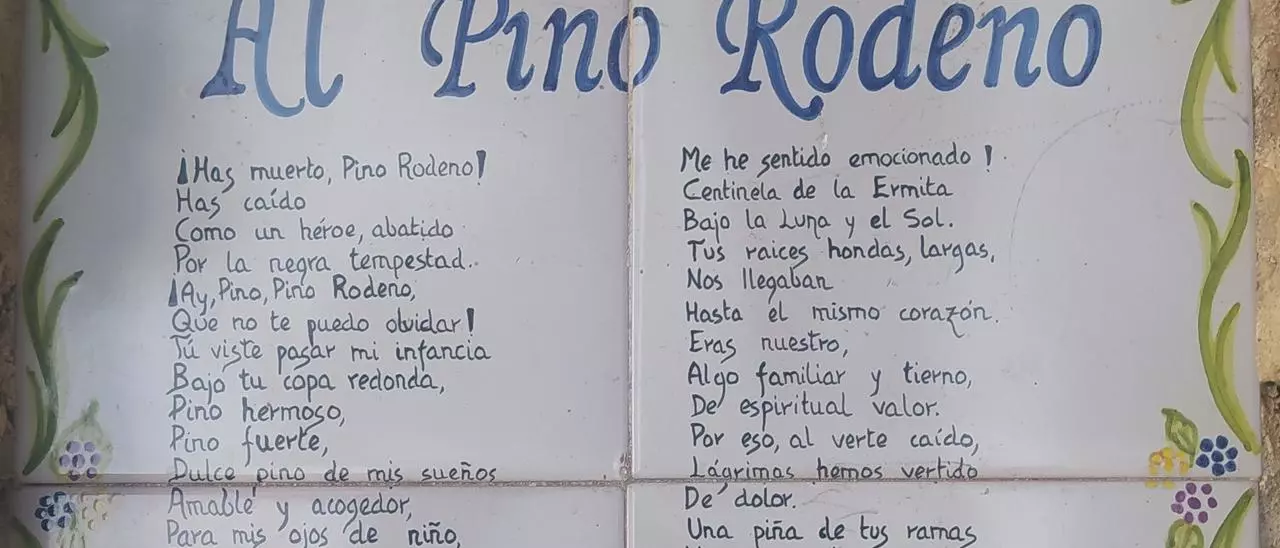 Al Pino Rodeno
¡Has muerto, Pino Rodeno!
Has caído
Como un héroe, abatido
Por la negra tempestad.
¡Ay, Pino, Pino Rodeno,
Que no te puedo olvidar!
Tú viste pasar mi infancia
Bajo tu copa redonda,
Pino hermoso,
Pino fuerte,
Dulce pino de mis sueños
Amable y acogedor,
Para mis ojos de niño,
Me he sentido emocionado!
Centinela de la Ermita
Bajo la Luna y el Sol.
Tus raices hondas, largas,
Nos llegaban
Hasta el mismo corazón.
Eras nuestro,
Algo familiar y tierno,
De espiritual valor.
Por eso, al verte caído,
Lágrimas hemos vertido
De dolor.
Una piña de tus ramas